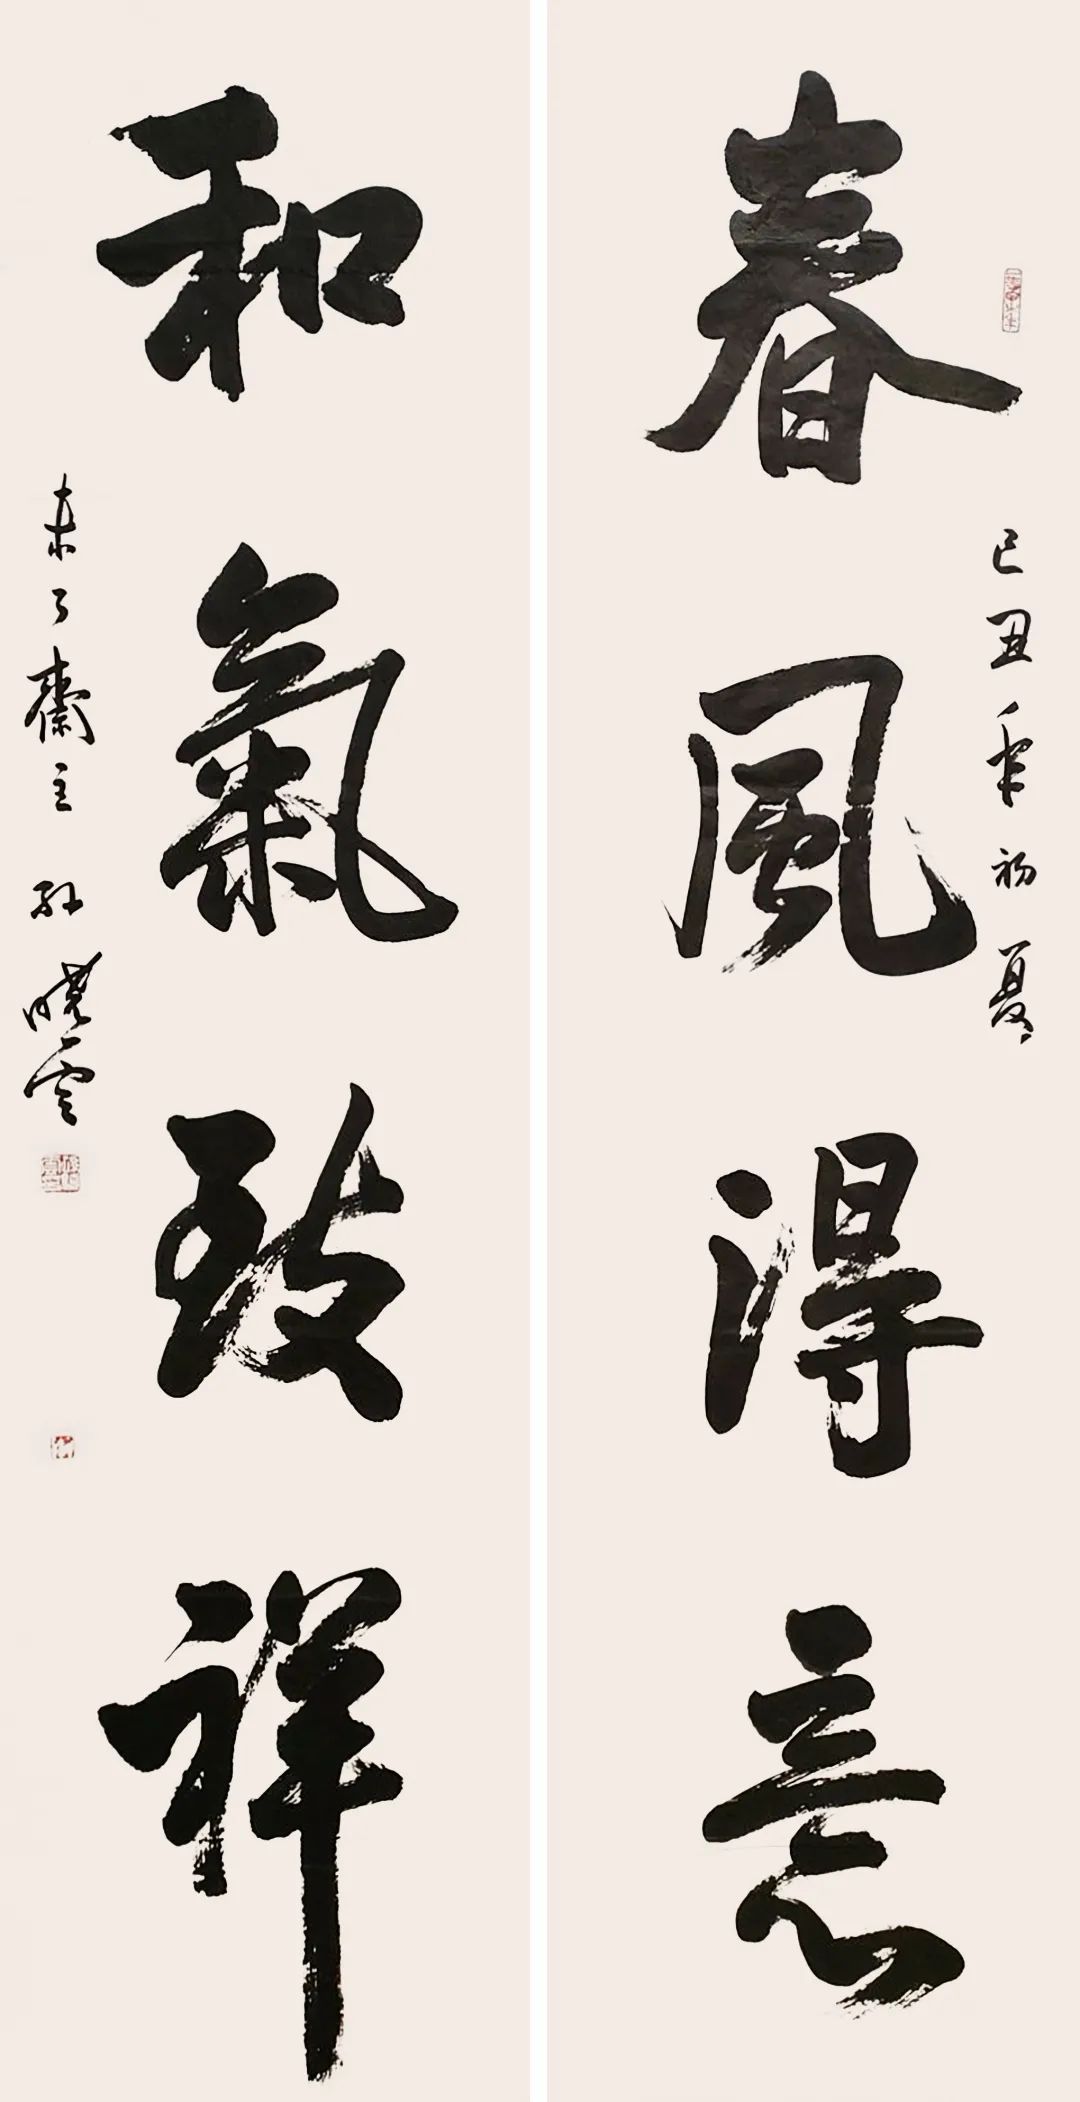 春風得意
己丑年初夏
和氣致祥
未了齋主 孙曉雲